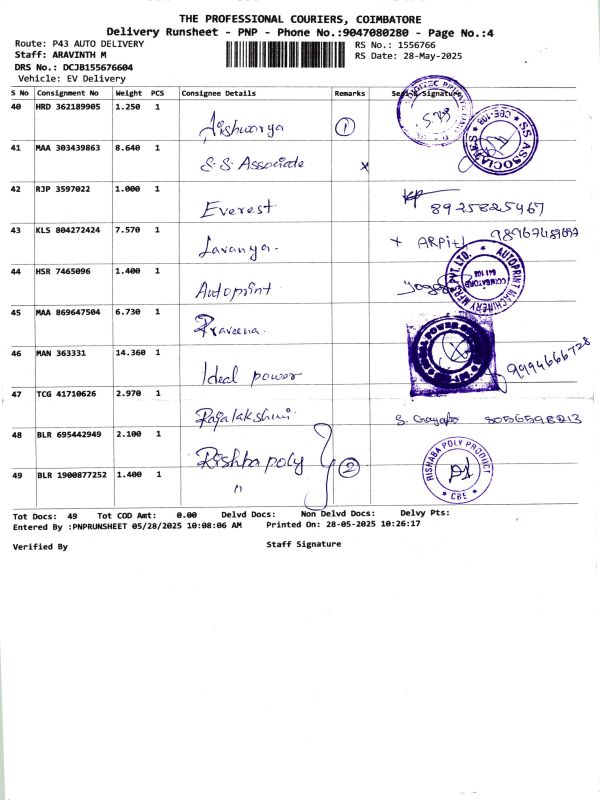 THE PROFESSIONAL COURIERS, COIMBATORE
Delivery Runsheet - PNP - Phone No.:9047080280 - Page No.:4
Route: P43 AUTO DELIVERY
Staff: ARAVINTH M
DRS No.: DCJB155676604
Vehicle: EV Delivery
RS No.: 1556766
RS Date: 28-May-2025
S No Consignment No Weight PCS Consignee Details Remarks Signature
40 HRD 362189905 1.250 1 Aishwarya 1
41 MAA 303439863 8.640 1 S.S. Associate x
S.S ASSOCIATES CBE-108
42 RJP 3597022 1.000 1 Everest 8925825467
43 KLS 804272424 7.570 1 Lavanya.
44 HSR 7465096 1.400 1 Autoprint
AUTOPRINT MACHINERY MFRS PVT. LTD. COIMBATORE 641 108
45 MAA 869647504 6.730 1 Praveena.
46 MAN 363331 14.360 1 Ideal power 9994666728
47 TCG 41710626 2.970 1 Rajalakshmi 8056598213
48 BLR 695442949 2.100 1 Rishba poly 2
49 BLR 1900877252 1.400 1 "
RISHABA POLY PRODUCT * CBE *
Tot Docs: 49 Tot COD Amt: 0.00 Delvd Docs: Non Delvd Docs: Delvy Pts:
Entered By :PNPRUNSHEET 05/28/2025 10:08:06 AM Printed On: 28-05-2025 10:26:17
Verified By Staff Signature